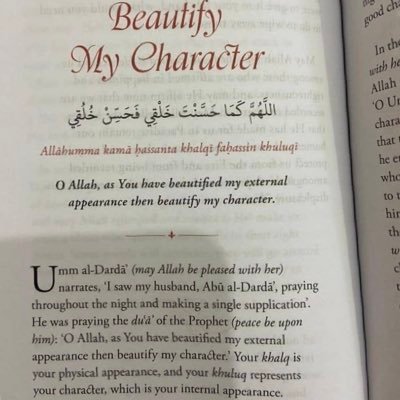 Beautify
My Character
اللَّهُمَّ كَمَا حَسَّنْتَ خَلْقِي فَحَسِّنْ خُلُقِي
Allāhumma kamā ḥassanta khalqī faḥassin khuluqī
O Allah, as You have beautified my external
appearance then beautify my character.
Umm al-Dardā’ (may Allah be pleased with her)
narrates, ‘I saw my husband, Abū al-Dardā’, praying
throughout the night and making a single supplication’.
He was praying the du‘ā’ of the Prophet (peace be upon
him): ‘O Allah, as You have beautified my external
appearance then beautify my character.’ Your khalq is
your physical appearance, and your khuluq represents
your character, which is your internal appearance.
good cha
In the
with he
Allah
‘O Un
chara
that
he e
who
to t
him
of
su
w